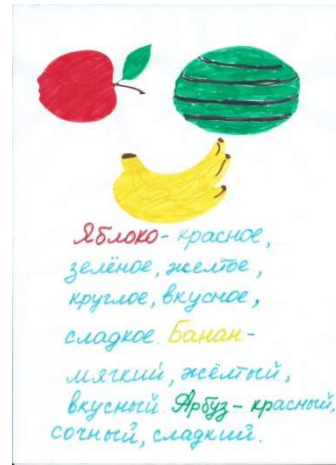 Яблоко - красное,
зелёное, желтое,
круглое, вкусное,
сладкое. Банан -
мягкий, жёлтый,
вкусный. Арбуз - красный,
сочный, сладкий.